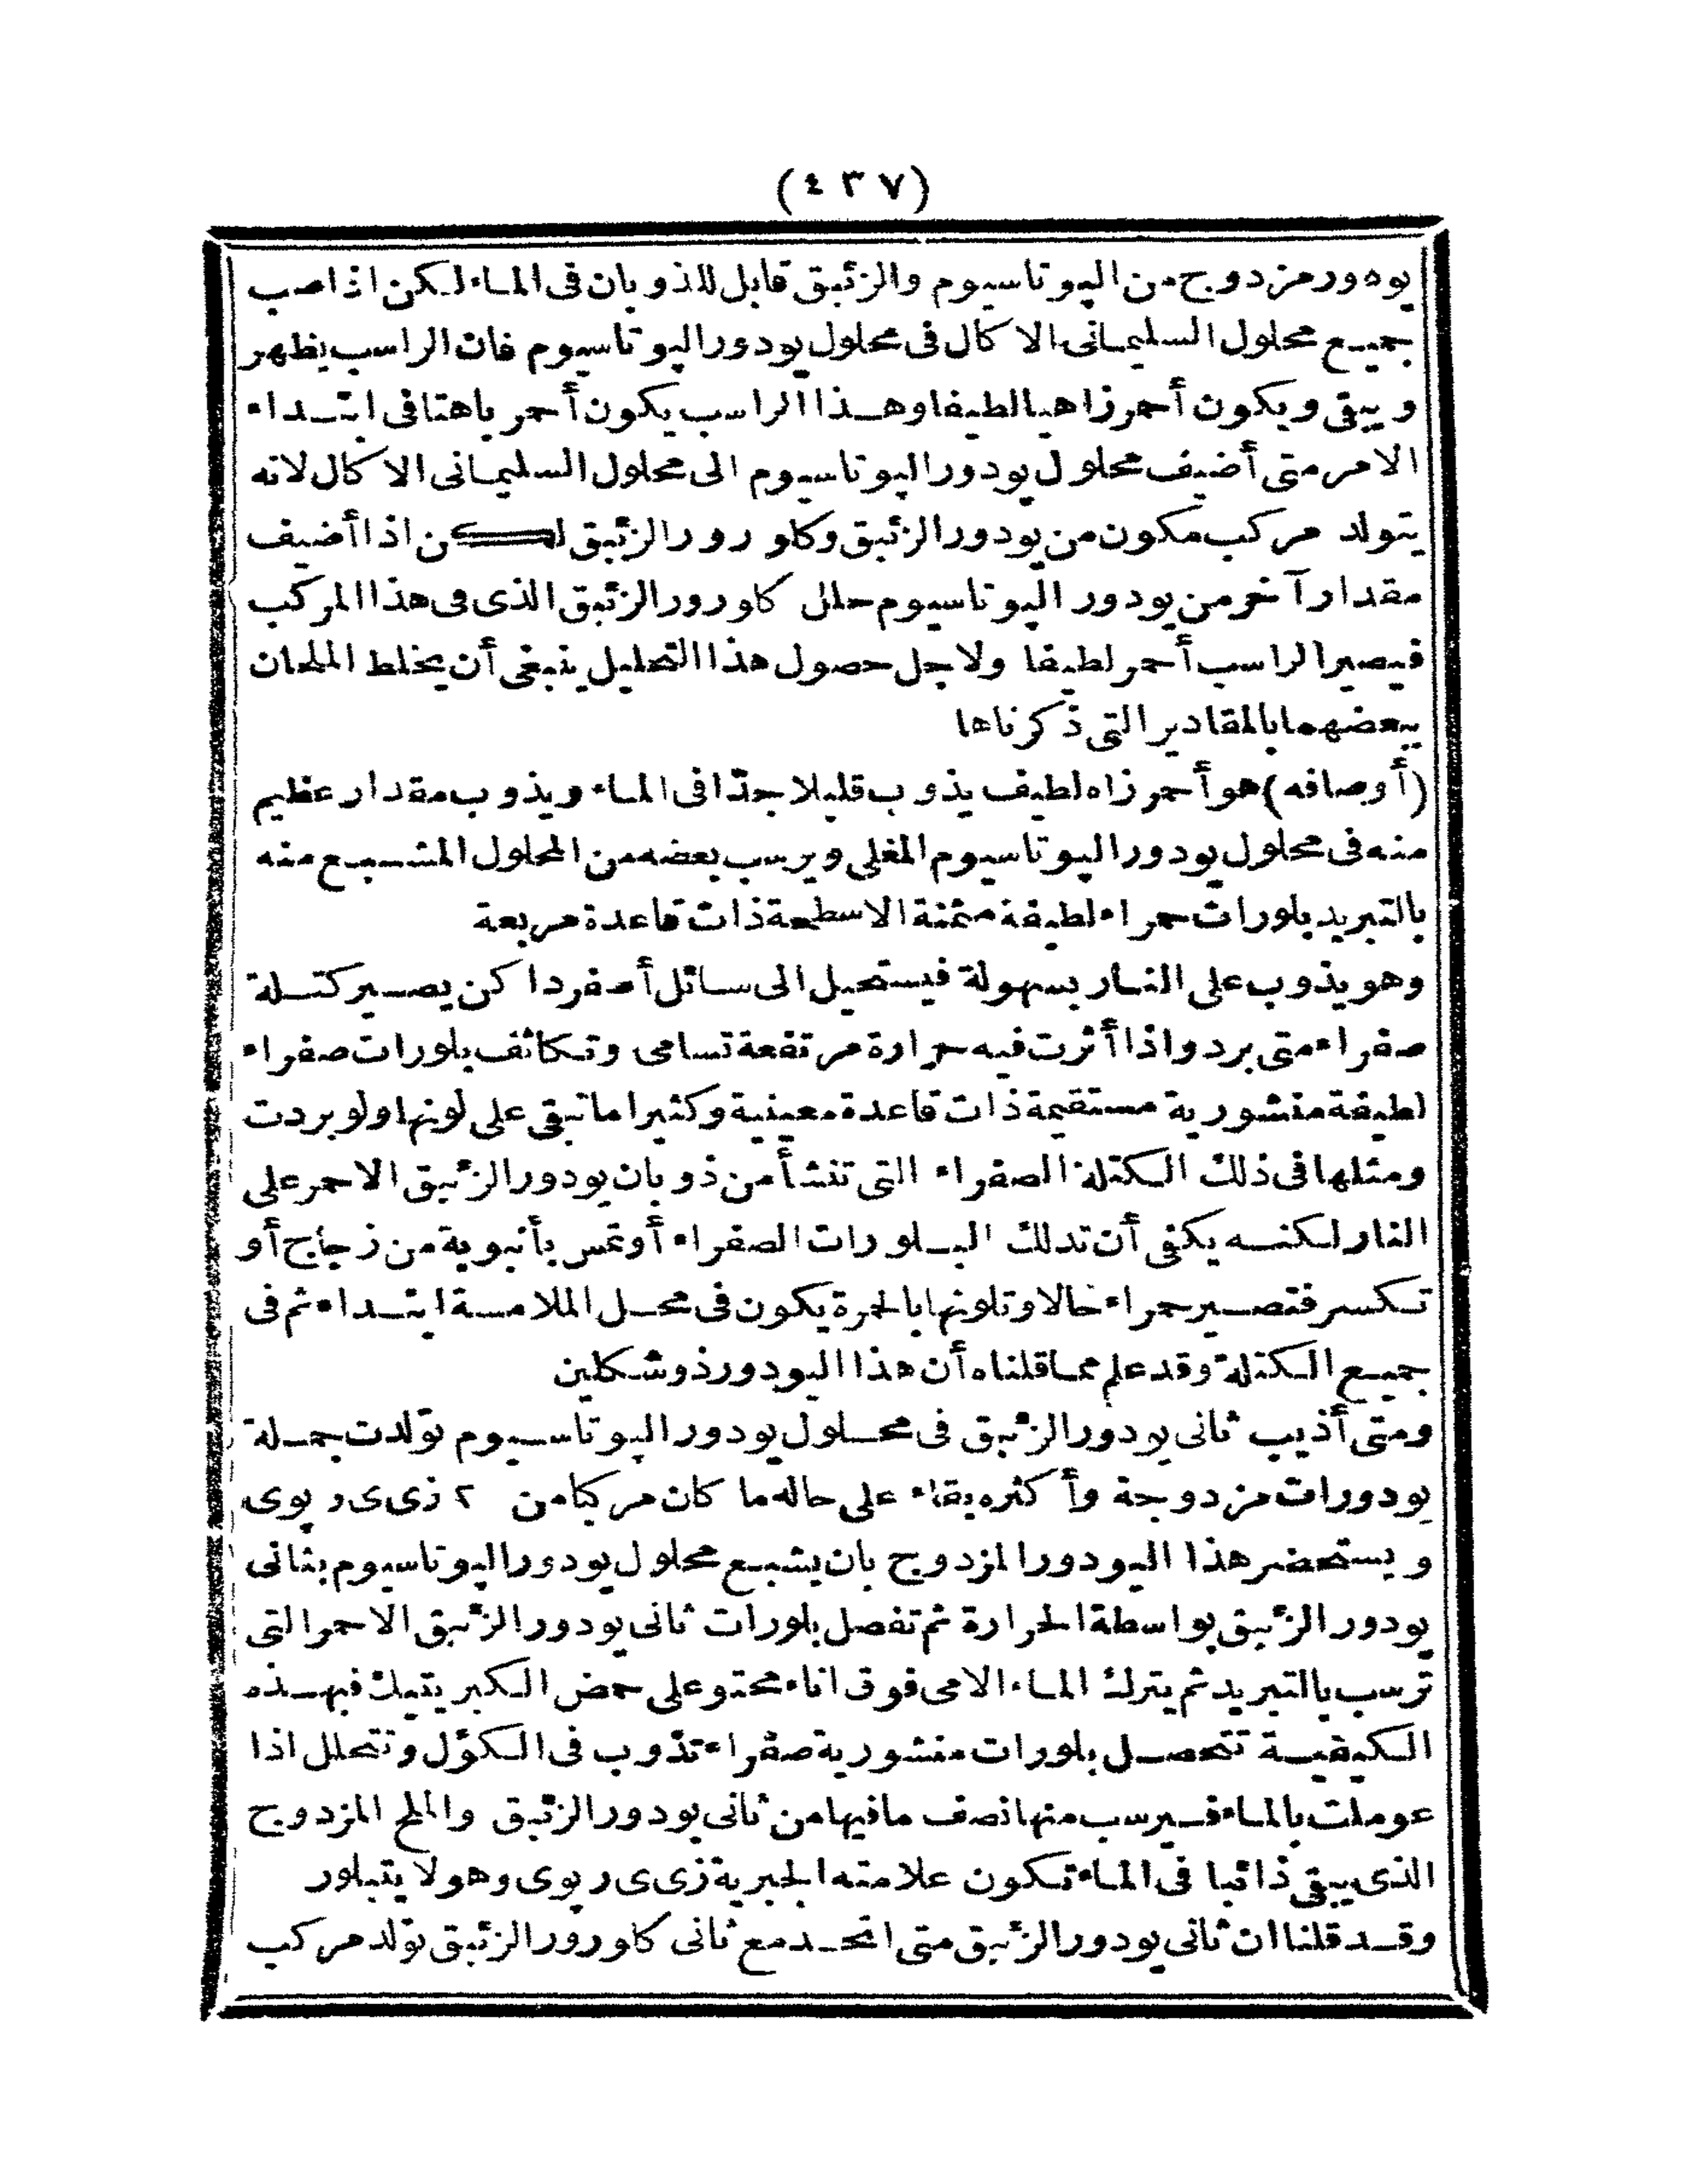 (٤٣٧)
يودور مزدوج من البوتاسيوم والزئبق قابل للذوبان فى الماء لكن اذا صب
جميع محلول السليمانى الاكال فى محلول يودور البوتاسيوم فان الراسب يظهر
ويبقى ويكون أحمر زاهيا لطيفا وهذا الراسب يكون أحمر باهتا فى ابتداء
الامر متى أضيف محلول يودور البوتاسيوم الى محلول السليمانى الاكال لانه
يتولد مركب مكون من يودور الزئبق وكلورور الزئبق لكن اذا أضيف
مقدار آخر من يودور البوتاسيوم حلل كلورور الزئبق الذى فى هذا المركب
فيصير الراسب أحمر لطيفا ولاجل حصول هذا التحليل ينبغى أن يخلط الملحان
ببعضهما بالمقادير التى ذكرناها
(أوصافه) هو أحمر زاه لطيف يذوب قليلا جدّا فى الماء ويذوب مقدار عظيم
منه فى محلول يودور البوتاسيوم المغلى ويرسب بعضه من المحلول المشبع منه
بالتبريد بلورات حمراء لطيفة مثمنة الاسطحة ذات قاعدة مربعة
وهو يذوب على النار بسهولة فيستحيل الى سائل أصفر داكن يصير كتلة
صفراء متى برد واذا أثرت فيه حرارة مرتفعة تسامى وتكاثف بلورات صفراء
لطيفة منشورية مستقيمة ذات قاعدة معينية وكثيرا ما تبقى على لونها ولو بردت
ومثلها فى ذلك الكتلة الصفراء التى تنشأ من ذوبان يودور الزئبق الاحمر على
النار لكنه يكفى أن تدلك البلورات الصفراء أو تمس بأنبوبة من زجاج أو
تكسر فتصير حمراء حالا وتلونها بالحمرة يكون فى محل الملامسة ابتداء ثم فى
جميع الكتلة وقد علم مما قلناه أن هذا اليودور ذو شكلين
ومتى أذيب ثانى يودور الزئبق فى محلول يودور البوتاسيوم تولدت جملة
يودورات مزدوجة وأكثره بقاء على حاله ما كان مركبا من ٢ زى ى ر پوى
ويستحضر هذا اليودور المزدوج بان يشبع محلول يودور البوتاسيوم بثانى
يودور الزئبق بواسطة الحرارة ثم تفصل بلورات ثانى يودور الزئبق الاحمر التى
ترسب بالتبريد ثم يترك الماء الامى فوق اناء محتو على حمض الكبريتيك فبهذه
الكيفية تتحصل بلورات منشورية صفراء تذوب فى الكؤل وتتحلل اذا
عوملت بالماء فيرسب منها نصف ما فيها من ثانى يودور الزئبق والملح المزدوج
الذى يبقى ذائبا فى الماء تكون علامته الجبرية زى ى ر پوى وهو لا يتبلور
وقد قلنا ان ثانى يودور الزئبق متى اتحد مع ثانى كلورور الزئبق تولد مركب